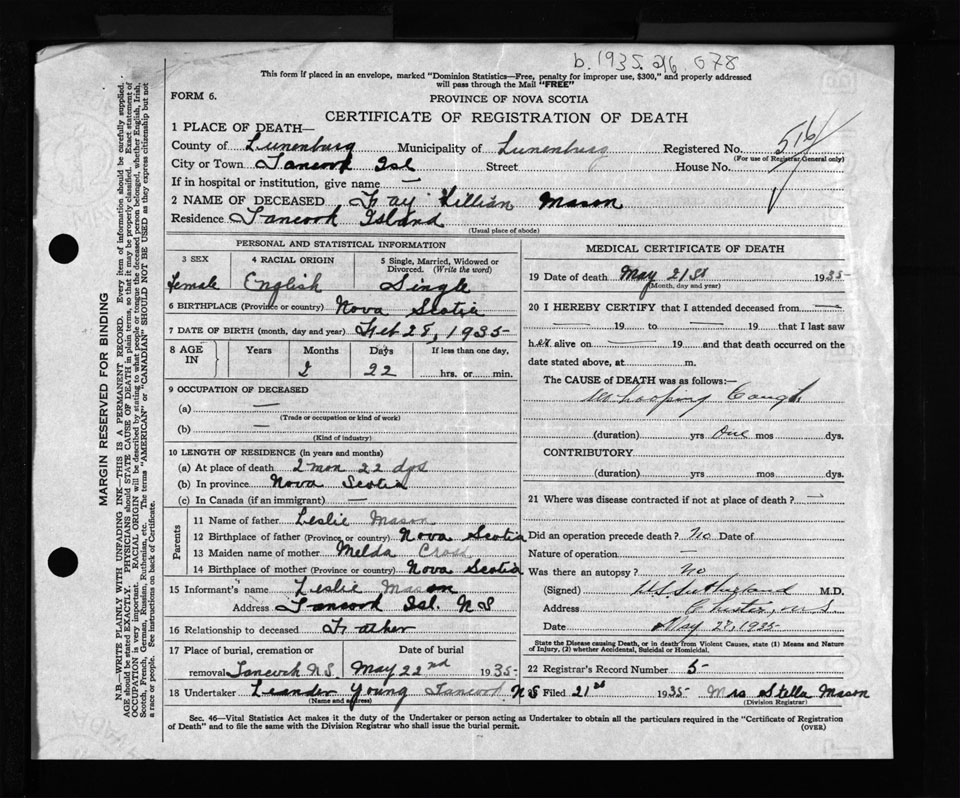 b. 1935. 216 678
This form if placed in an envelope, marked "Dominion Statistics—Free, penalty for improper use, $300," and properly addressed
will pass through the Mail "FREE"
FORM 6.
PROVINCE OF NOVA SCOTIA
CERTIFICATE OF REGISTRATION OF DEATH
1 PLACE OF DEATH—
County of Lunenburg Municipality of Lunenburg Registered No. 516
(For use of Registrar General only)
City or Town Tancook Isl Street House No.
If in hospital or institution, give name —
2 NAME OF DECEASED Fay Lillian Mason
Residence Tancook Island
(Usual place of abode)
PERSONAL AND STATISTICAL INFORMATION
3 SEX
Female
4 RACIAL ORIGIN
English
5 Single, Married, Widowed or
Divorced. (Write the word)
Single
6 BIRTHPLACE (Province or country) Nova Scotia
7 DATE OF BIRTH (month, day and year) Feb 28, 1935
8 AGE IN Years Months Days If less than one day,
2 22 hrs. or min.
9 OCCUPATION OF DECEASED
(a) —
(Trade or occupation or kind of work)
(b) —
(Kind of industry)
10 LENGTH OF RESIDENCE (in years and months)
(a) At place of death 2 mon 22 dys
(b) In province Nova Scotia
(c) In Canada (if an immigrant) —
Parents
11 Name of father Leslie Mason
12 Birthplace of father (Province or country) Nova Scotia
13 Maiden name of mother Melda Cross
14 Birthplace of mother (Province or country) Nova Scotia
15 Informant's name Leslie Mason
Address Tancook Isl. N S
16 Relationship to deceased Father
17 Place of burial, cremation or
removal Tancook N.S.
Date of burial
May 22nd 1935
18 Undertaker Leander Young Tancook N S
(Name and address)
MEDICAL CERTIFICATE OF DEATH
19 Date of death May 21st 1935
(Month, day and year)
20 I HEREBY CERTIFY that I attended deceased from —
— 19 to — 19 that I last saw
her alive on — 19 and that death occurred on the
date stated above, at m.
The CAUSE of DEATH was as follows:—
Whooping Cough
(duration) yrs One mos dys.
CONTRIBUTORY
(duration) yrs mos dys.
21 Where was disease contracted if not at place of death? —
Did an operation precede death? No Date of
Nature of operation —
Was there an autopsy? No
(Signed) Sutherland M.D.
Address Chester, N S
Date May 28, 1935
State the Disease causing Death, or in death from Violent Causes, state (1) Means and Nature
of Injury, (2) whether Accidental, Suicidal or Homicidal.
22 Registrar's Record Number 5
Filed 21st 1935 Mrs Stella Mason
(Division Registrar)
Sec. 46—Vital Statistics Act makes it the duty of the Undertaker or person acting as Undertaker to obtain all the particulars required in the "Certificate of Registration
of Death" and to file the same with the Division Registrar who shall issue the burial permit.
(OVER)
MARGIN RESERVED FOR BINDING
N.B.—WRITE PLAINLY WITH UNFADING INK—THIS IS A PERMANENT RECORD. Every item of information should be carefully supplied.
AGE should be stated EXACTLY. PHYSICIANS should STATE CAUSE OF DEATH in plain terms, so that it may be properly classified. Exact statement of
OCCUPATION is very important. RACIAL ORIGIN will be described by stating to what people or tongue the deceased person belonged, whether English, Irish,
Scotch, French, German, Russian, Ruthenian, etc. The terms "AMERICAN" or "CANADIAN" SHOULD NOT BE USED as they express citizenship but not
a race or people. See instructions on back of Certificate.